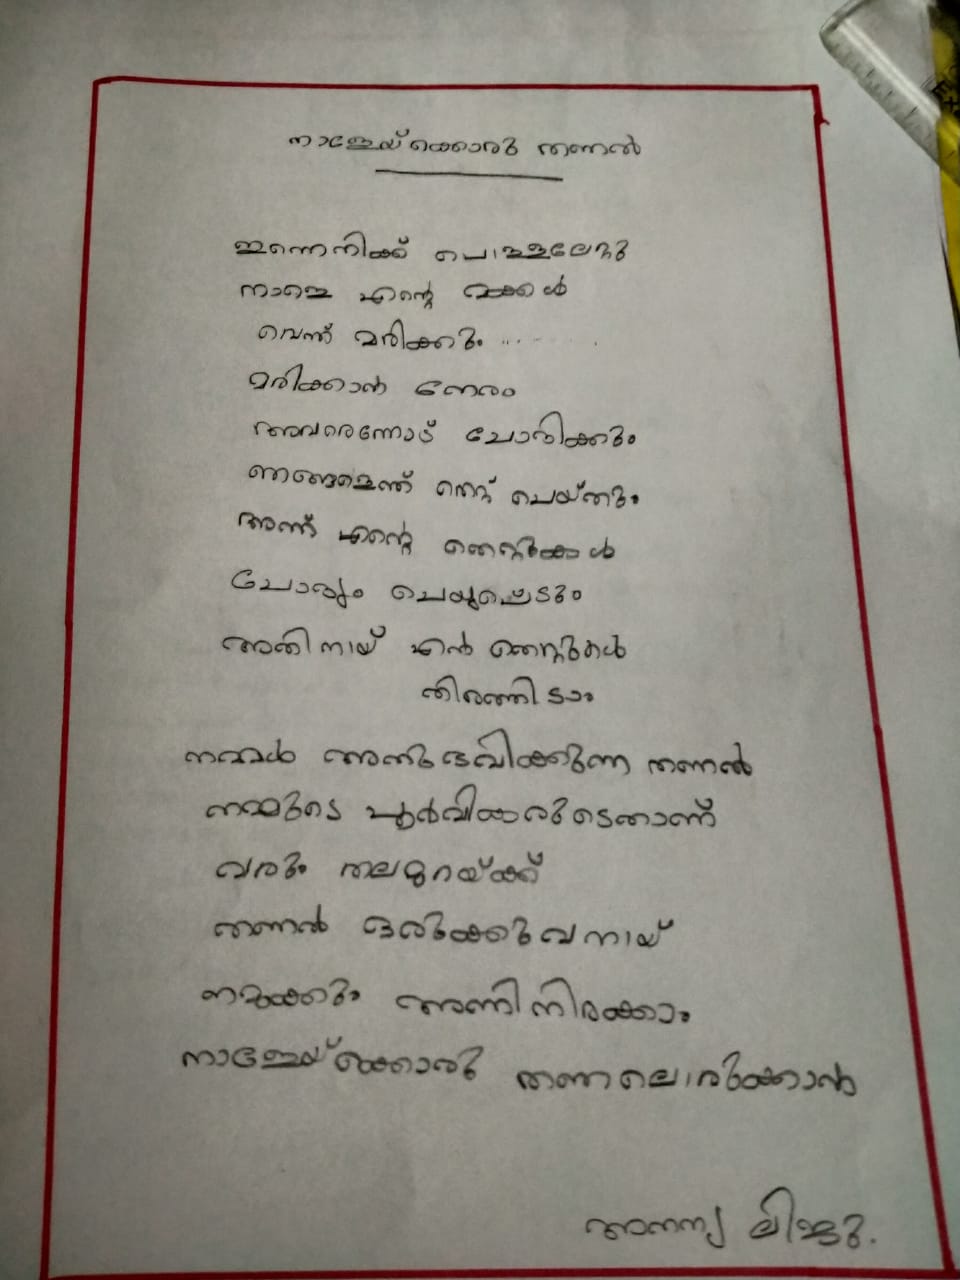 നാളേയ്ക്കൊരു തണൽ
ഇന്നെനിക്ക് പൊള്ളലേറ്റു
നാളെ എന്റെ മക്കൾ
വെന്ത് മരിക്കും
മരിക്കാൻ നേരം
അവരെന്നോട് ചോദിക്കും
ഞങ്ങളെന്ത് തെറ്റ് ചെയ്തും
അന്ന് എന്റെ തെറ്റുകൾ
ചോദ്യം ചെയ്യപ്പെടും
അതിനായ് എൻ തെറ്റുകൾ
തിരുത്തിടാം
നമ്മൾ അനുഭവിക്കുന്ന തണൽ
നമ്മുടെ പൂർവികരുടെതാണ്
വരും തലമുറയ്ക്ക്
തണൽ ഒരുക്കുവനായ്
നമുക്കും അണിനിരക്കാം
നാളേയ്ക്കൊരു തണലൊരുക്കാൻ
അനന്യ ലിജു.